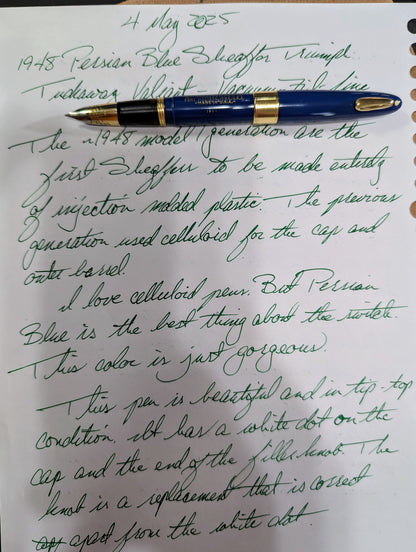 4 May 2025
1948 Persian Blue Sheaffer Triumph
Tuckaway Valiant - Vacuum-Fil line
The ~1948 model / generation are the
first Sheaffers to be made entirely
of injection molded plastic. The previous
generation used celluloid for the cap and
outer barrel.
I love celluloid pens. But Persian
Blue is the best thing about the switch.
This color is just gorgeous.
This pen is beautiful and in tip-top
condition. It has a white dot on the
cap and the end of the filler knob. The
knob is a replacement that is correct
apart from the white dot.